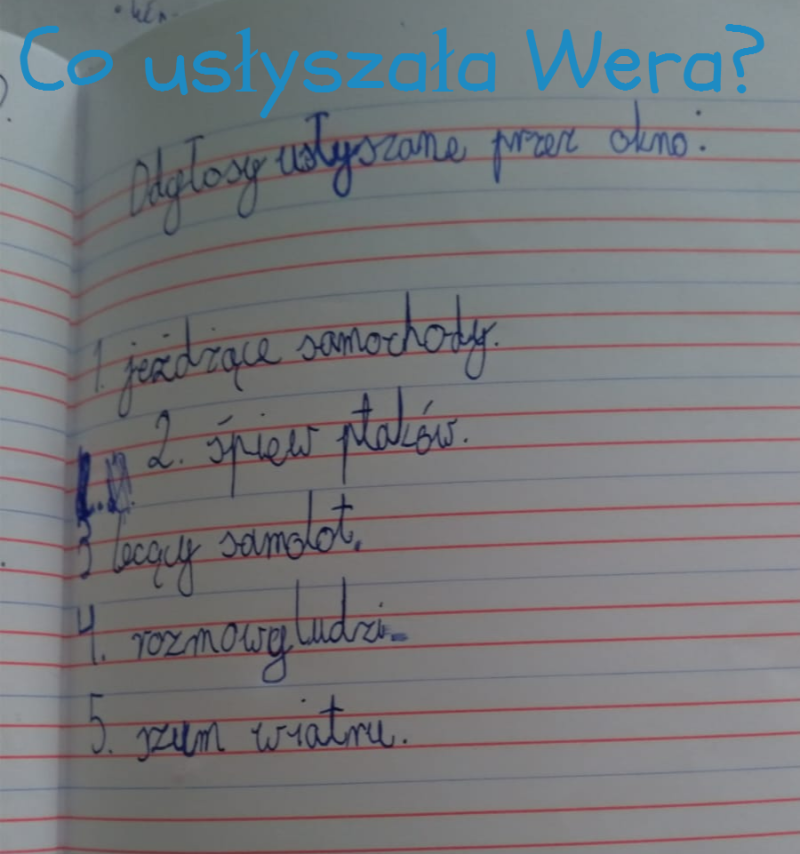 Co usłyszała Wera?
Odgłosy usłyszane przez okno:
1. jeżdżące samochody.
2. śpiew ptaków.
3 lecący samolot.
4. rozmowę ludzi.
5. szum wiatru.